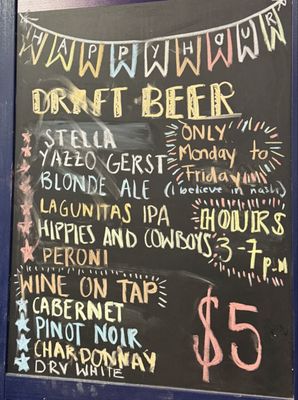 HAPPY HOUR
DRAFT BEER
STELLA
YAZZO GERST
BLONDE ALE (I believe in nash)
LAGUNITAS IPA
HIPPIES AND COWBOYS
PERONI
ONLY
Monday to
Friday!!!
HOURS
3-7 p.m
WINE ON TAP
CABERNET
PINOT NOIR
CHARDONNAY
DRY WHITE
$5